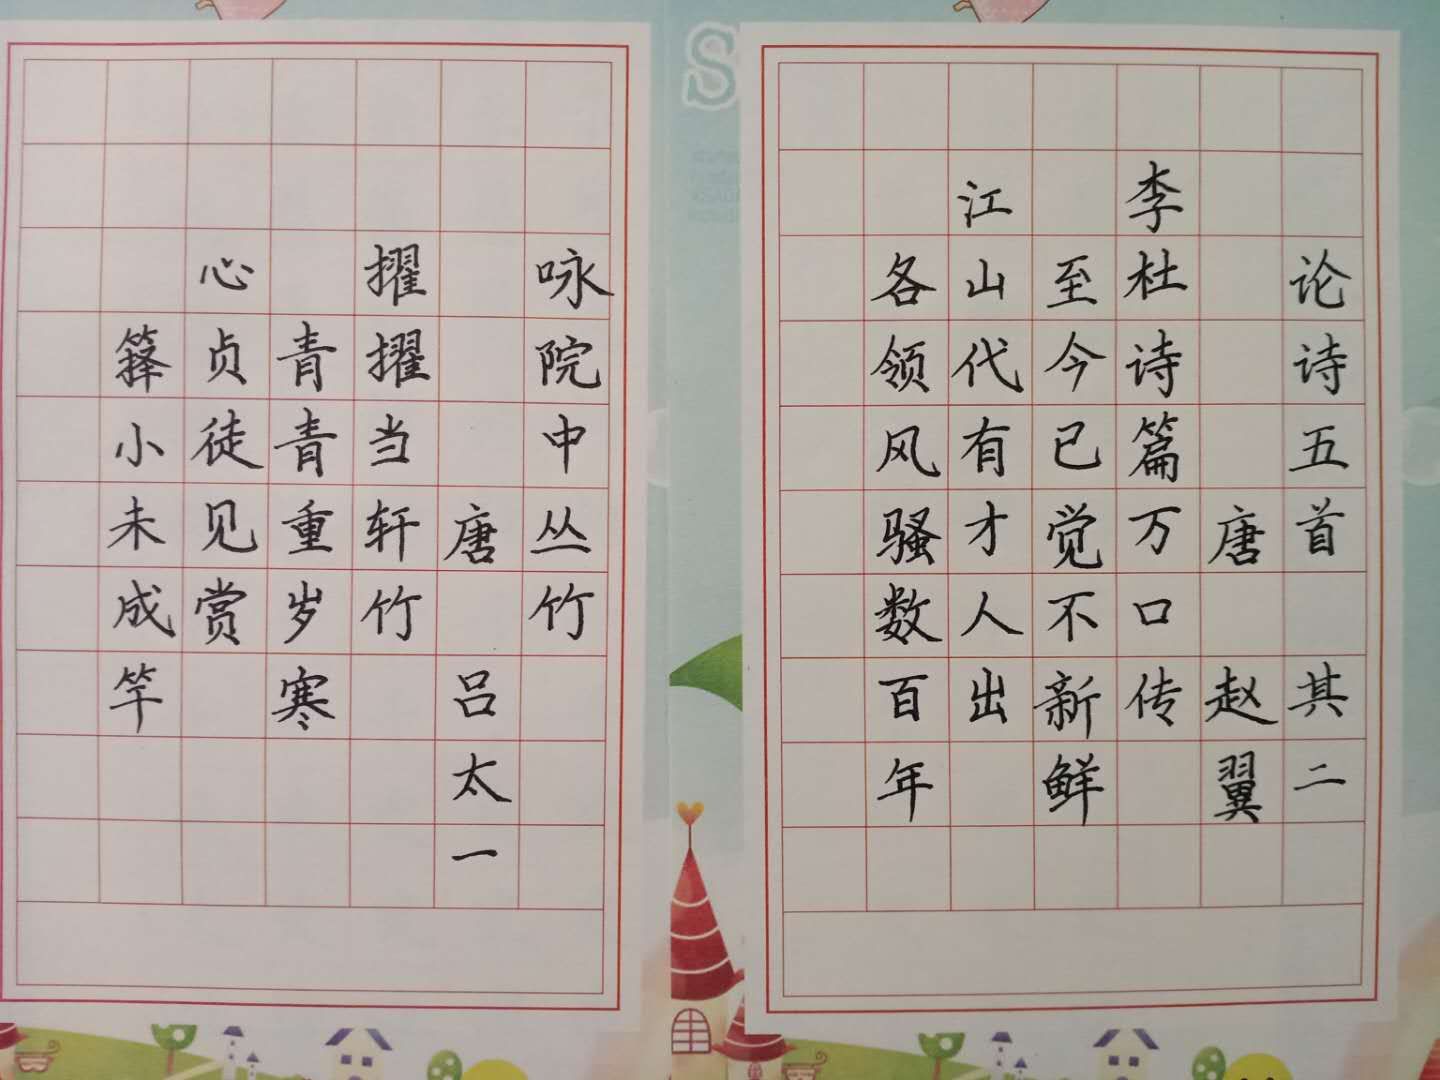 咏院中丛竹
唐 吕太一
擢擢当轩竹
青青重岁寒
心贞徒见赏
箨小未成竿
论诗五首 其二
唐 赵翼
李杜诗篇万口传
至今已觉不新鲜
江山代有才人出
各领风骚数百年